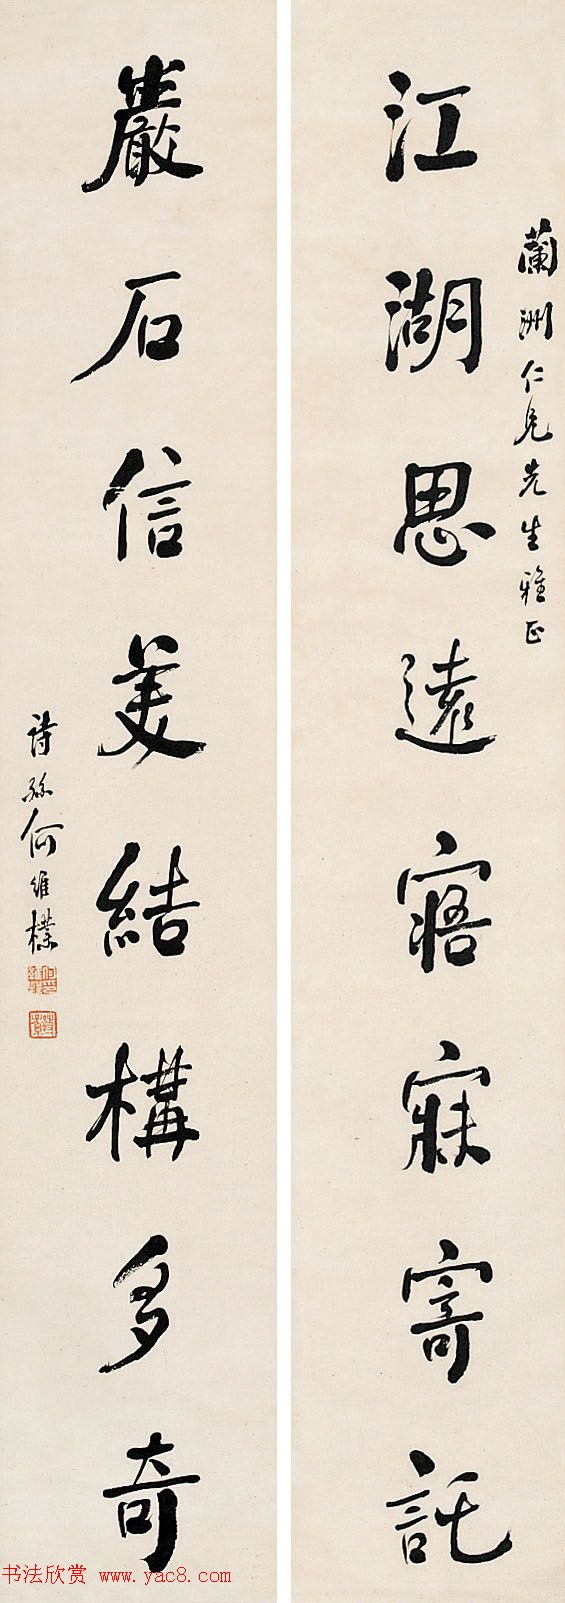 蘭洲仁兄先生雅正
江湖思遠寤寐寄託
巖石信美結構多奇
詩孫何維樸
书法欣赏 www.yac8.com